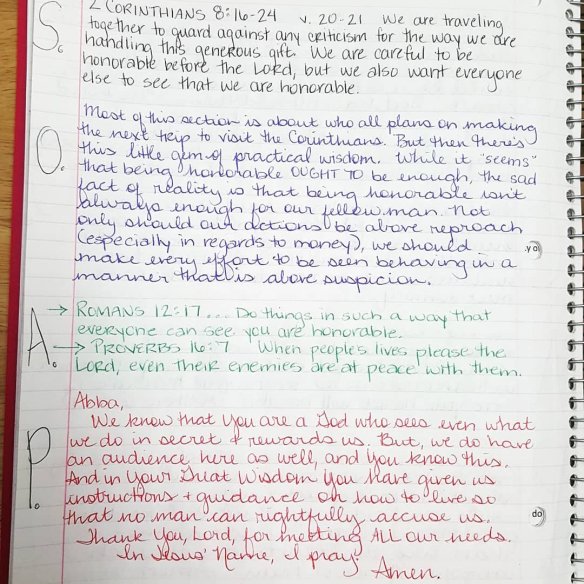 S. 2 CORINTHIANS 8:16-24 v. 20-21 We are traveling
together to guard against any criticism for the way we are
handling this generous gift. We are careful to be
honorable before the Lord, but we also want everyone
else to see that we are honorable.
O. Most of this section is about who all plans on making
the next trip to visit the Corinthians. But then there's
this little gem of practical wisdom. While it "seems"
that being honorable OUGHT TO be enough, the sad
fact of reality is that being honorable isn't
always enough for our fellow man. Not
only should our actions be above reproach
(especially in regards to money), we should
make every effort to be seen behaving in a
manner that is above suspicion.
A. → ROMANS 12:17... Do things in such a way that
everyone can see you are honorable.
→ PROVERBS 16:7 When people's lives please the
Lord, even their enemies are at peace with them.
P. Abba,
We know that You are a God who sees even what
we do in secret + rewards us. But, we do have
an audience here as well, and You know this.
And in Your Great Wisdom You have given us
instructions + guidance on how to live so
that no man can rightfully accuse us.
Thank You, Lord, for meeting ALL our needs.
In Jesus' Name, I pray.
Amen.